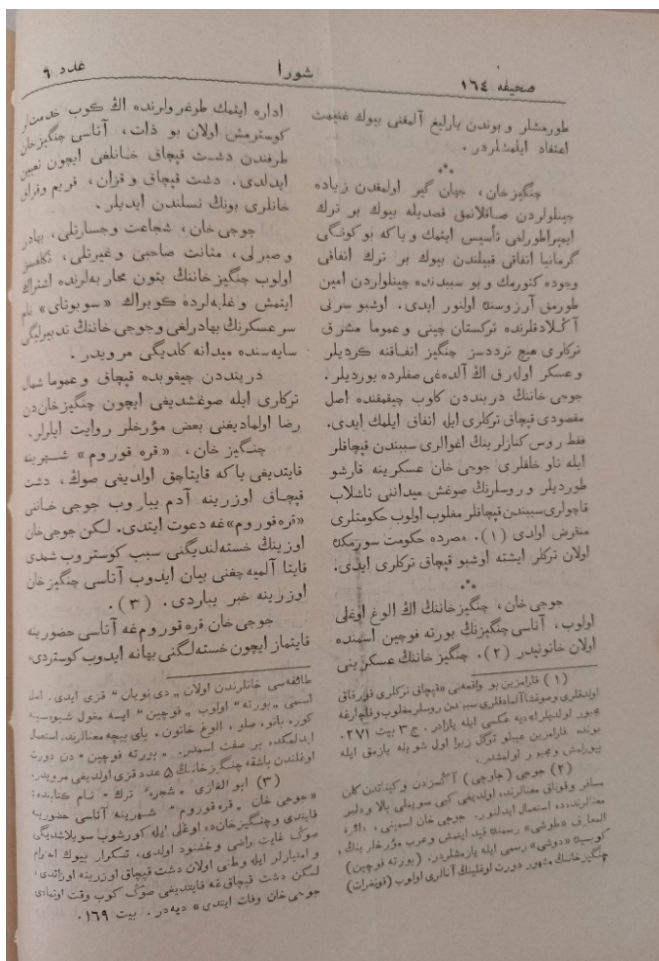 صحیفه ١٦٤
شورا
عدد ٦
طورمشلر و بوندن یارلیغ آلمغنی بیوك غنیمت
اعتقاد ایلمشلردر .
چنگیز خان ، جهان گیر اولمقدن زیاده
چینلولردن صاقلانمق قصدیله بیوك بر ترك
ایمپراطورلغی تأسیس ایتمك و یا كه بو كونگی
گرمانیا اتفاقی قبیلندن بیوك بر ترك اتفاقی
وجوده كتورمك و بو سببدنده چینلولردن امین
طورمق آرزوسنده اولنور ایدی. اوشبو سرنی
آڭلادقلرنده تركستان چینی و عموما مشرق
تركلری هیچ ترددسز چنگیز اتفاقنه كردیلر
و عسكر اولهرق اڭ آلدهغی صفلرده یوردیلر .
جوجی خاننڭ دربنددن كلوب چیقمقنده اصل
مقصودی قپچاق تركلری ایله اتفاق ایلمك ایدی.
فقط روس كنازلرینڭ اغوالری سببندن قپچاقلر
ایله تاو خلقلری جوجی خان عسكرینه قارشو
طوردیلر و روسلرنڭ صوغش میداننی تاشلاب
قاچولری سببندن قپچاقلر مغلوب اولوب حكومتلری
منقرض اولدی (١). مصرده حكومت سورمكده
اولان تركلر ایشته اوشبو قپچاق تركلری ایدی.
جوجی خان ، چنگیز خاننڭ اڭ الوغ اوغلی
اولوب ، آناسی چنگیزنڭ بورته فوچین اسمنده
اولان خاتونیدر (٢). چنگیز خاننڭ عسكرینی
(١) قارامزین بو واقعهنی «قپچاق تركلری قورقاق
اولدقلری و صوغشا آلمادقلری سببندن روسلر مغلوب و قاچارغه
مجبور اولدیلر» دیه عكسی ایله یازادر . ج ٣ بیت ٢٧١.
بونده قارامزین عیبلو توگل زیرا اول شویله یازمق ایله
بیورلمش و مجبور اولمشدر.
(٢) جوجی (چاوچی) آڭسزدن و كیتدكدن كلن
مسافر و قوناق معنالرنده اولدیغی كبی سویملی بالا و دلبر
معنالرنده ده استعمال ایدلنور. جوجی خان اسمینی ، دائرة
المعارف «طوشی» رسمنده قید ایتمش و عرب مؤرخلرینڭ
كوبسی «دوشی» رسمی ایله یازمشلردر. (بورته فوچین)
چنگیز خاننڭ مشهور دورت اوغلینڭ آنالری اولوب (قونغرات)
اداره ایتمك طوغرولرنده اڭ كوب خدمتلر
كوسترمش اولان بو ذات ، آتاسی چنگیز خان
طرفندن دشت قپچاق خانلغی ایچون تعیین
ایدلدی. دشت قپچاق و قزان ، قریم و قزاق
خانلری بونڭ نسلندن ایدیلر .
جوجی خان ، شجاعت و جسارتلی ، بهادر
و صبرلی ، متانت صاحبی و غیرتلی ، تكلفسز
اولوب چنگیز خاننڭ بتون محاربهلرنده اشتراك
ایتمش و غلبهلرده كوبراك «سوبوتای» نام
سر عسكرنڭ بهادرلغی و جوجی خاننڭ تدبیرلیگی
سایهسنده میدانه كلدیگی مرویدر .
دربنددن چیغوبده قپچاق و عموما شمال
تركلری ایله صوغشدیغی ایچون چنگیز خاندن
رضا اولمادیغنی بعض مؤرخلر روایت ایلرلر.
چنگیز خان ، «قره قوروم» شهرینه
قایتدیغی یا كه قایتاچق اولدیغی صوڭ ، دشت
قپچاق اوزرینه آدم یباروب جوجی خاننی
«قره قوروم» غه دعوت ایتدی. لكن جوجی خان
اوزینڭ خستهلندیگنی سبب كوستروب شمدی
قایتا آلمیهچغنی بیان ایدوب آتاسی چنگیز خان
اوزرینه خبر یباردی. (٣).
جوجی خان قره قورومغه آتاسی حضورینه
قایتماز ایچون خستهلگنی بهانه ایدوب كوستردی
طائفهسی خانلرندن اولان «دی نویان» قزی ایدی. اصل
اسمی «بورته» اولوب «فوچین» ایسه مغول شیوهسینه
كوره بانو، صلو ، الوغ خاتون ، بای بیچه معنالرنده استعمال
ایدلمكده بر صفت اسمیدر. «بورته فوچین» دن دورت
اوغلندن باشقه چنگیز خاننڭ ٥ عدد قزی اولدیغی مرویدر.
(٣) ابو الغازی «شجرهء ترك» نام كتابنده:
«جوجی خان «قره قوروم» شهرینه آتاسی حضورینه
قایتدی و چنگیز خان ده اوغلی ایله كورشوب سویلاشدیگی
صوڭ غایت راضی و خشنود اولدی، تكرار بیوك احترام
و امتیازلر ایله وطنی اولان دشت قپچاق اوزرینه اوزاتدی،
لكن دشت قپچاقغه قایتدیغی صوڭ كوب وقت اوتمادی
جوجی خان وفات ایتدی» دیهدر . بیت ١٦٩.